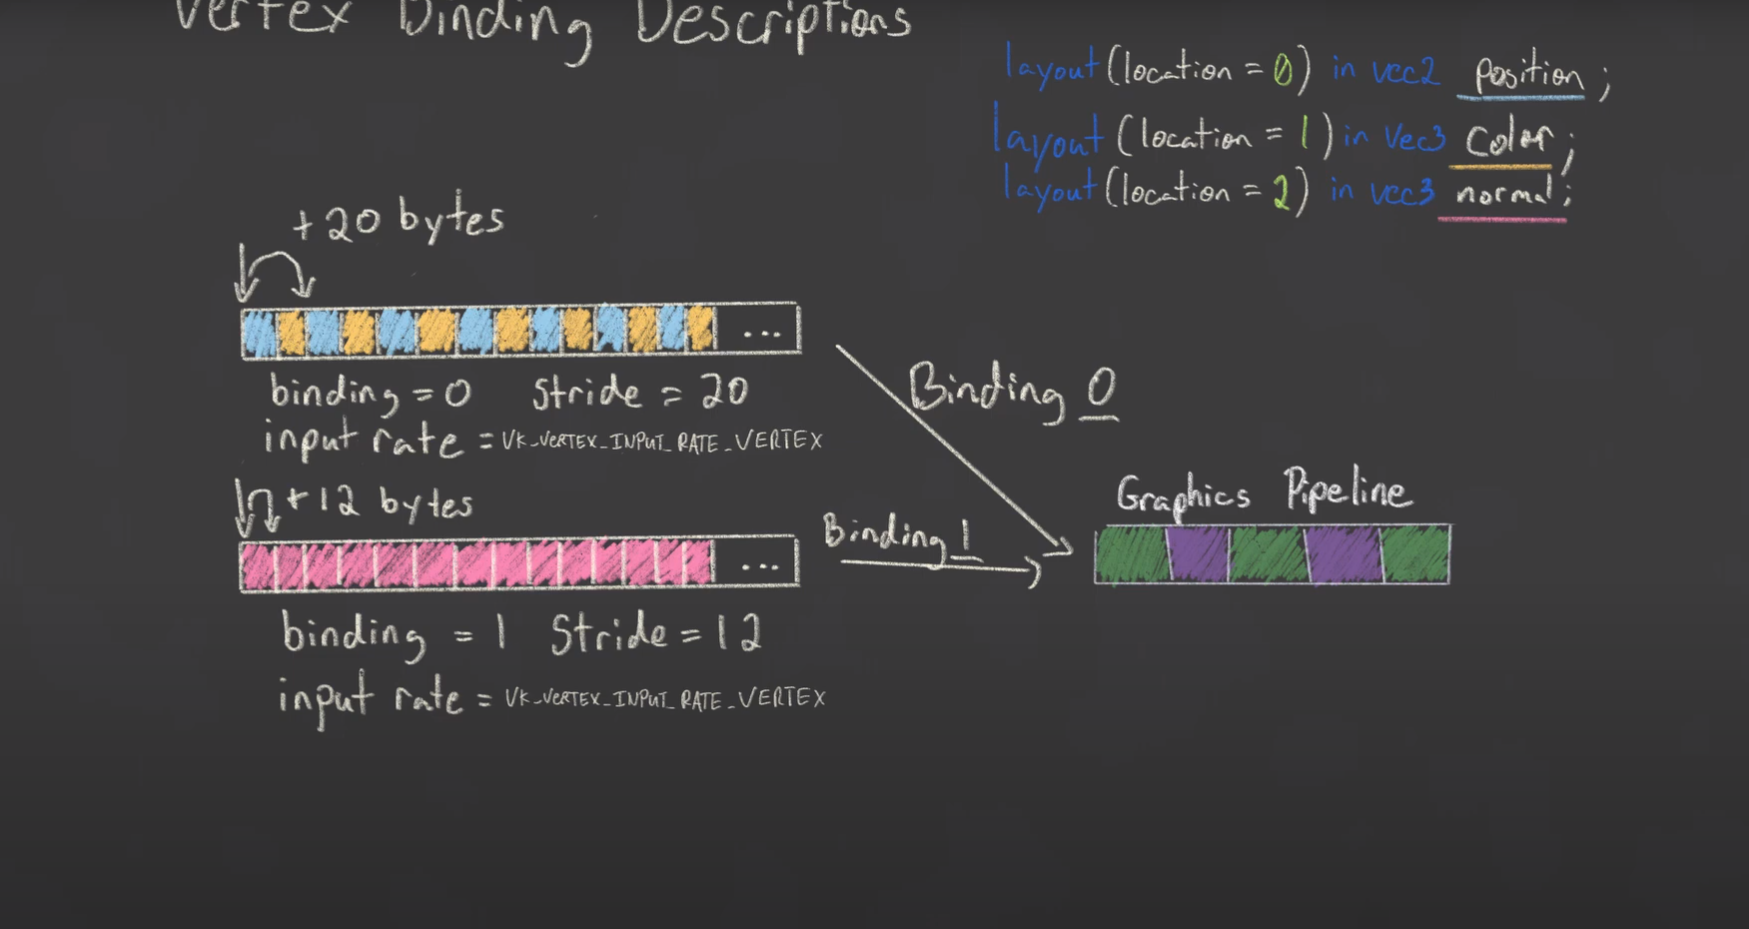 Vertex Binding Descriptions
layout(location = 0) in vec2 position;
layout(location = 1) in vec3 color;
layout(location = 2) in vec3 normal;
+20 bytes
...
binding = 0 stride = 20
input rate = VK_VERTEX_INPUT_RATE_VERTEX
+12 bytes
...
binding = 1 stride = 12
input rate = VK_VERTEX_INPUT_RATE_VERTEX
Binding 0
Binding 1
Graphics Pipeline